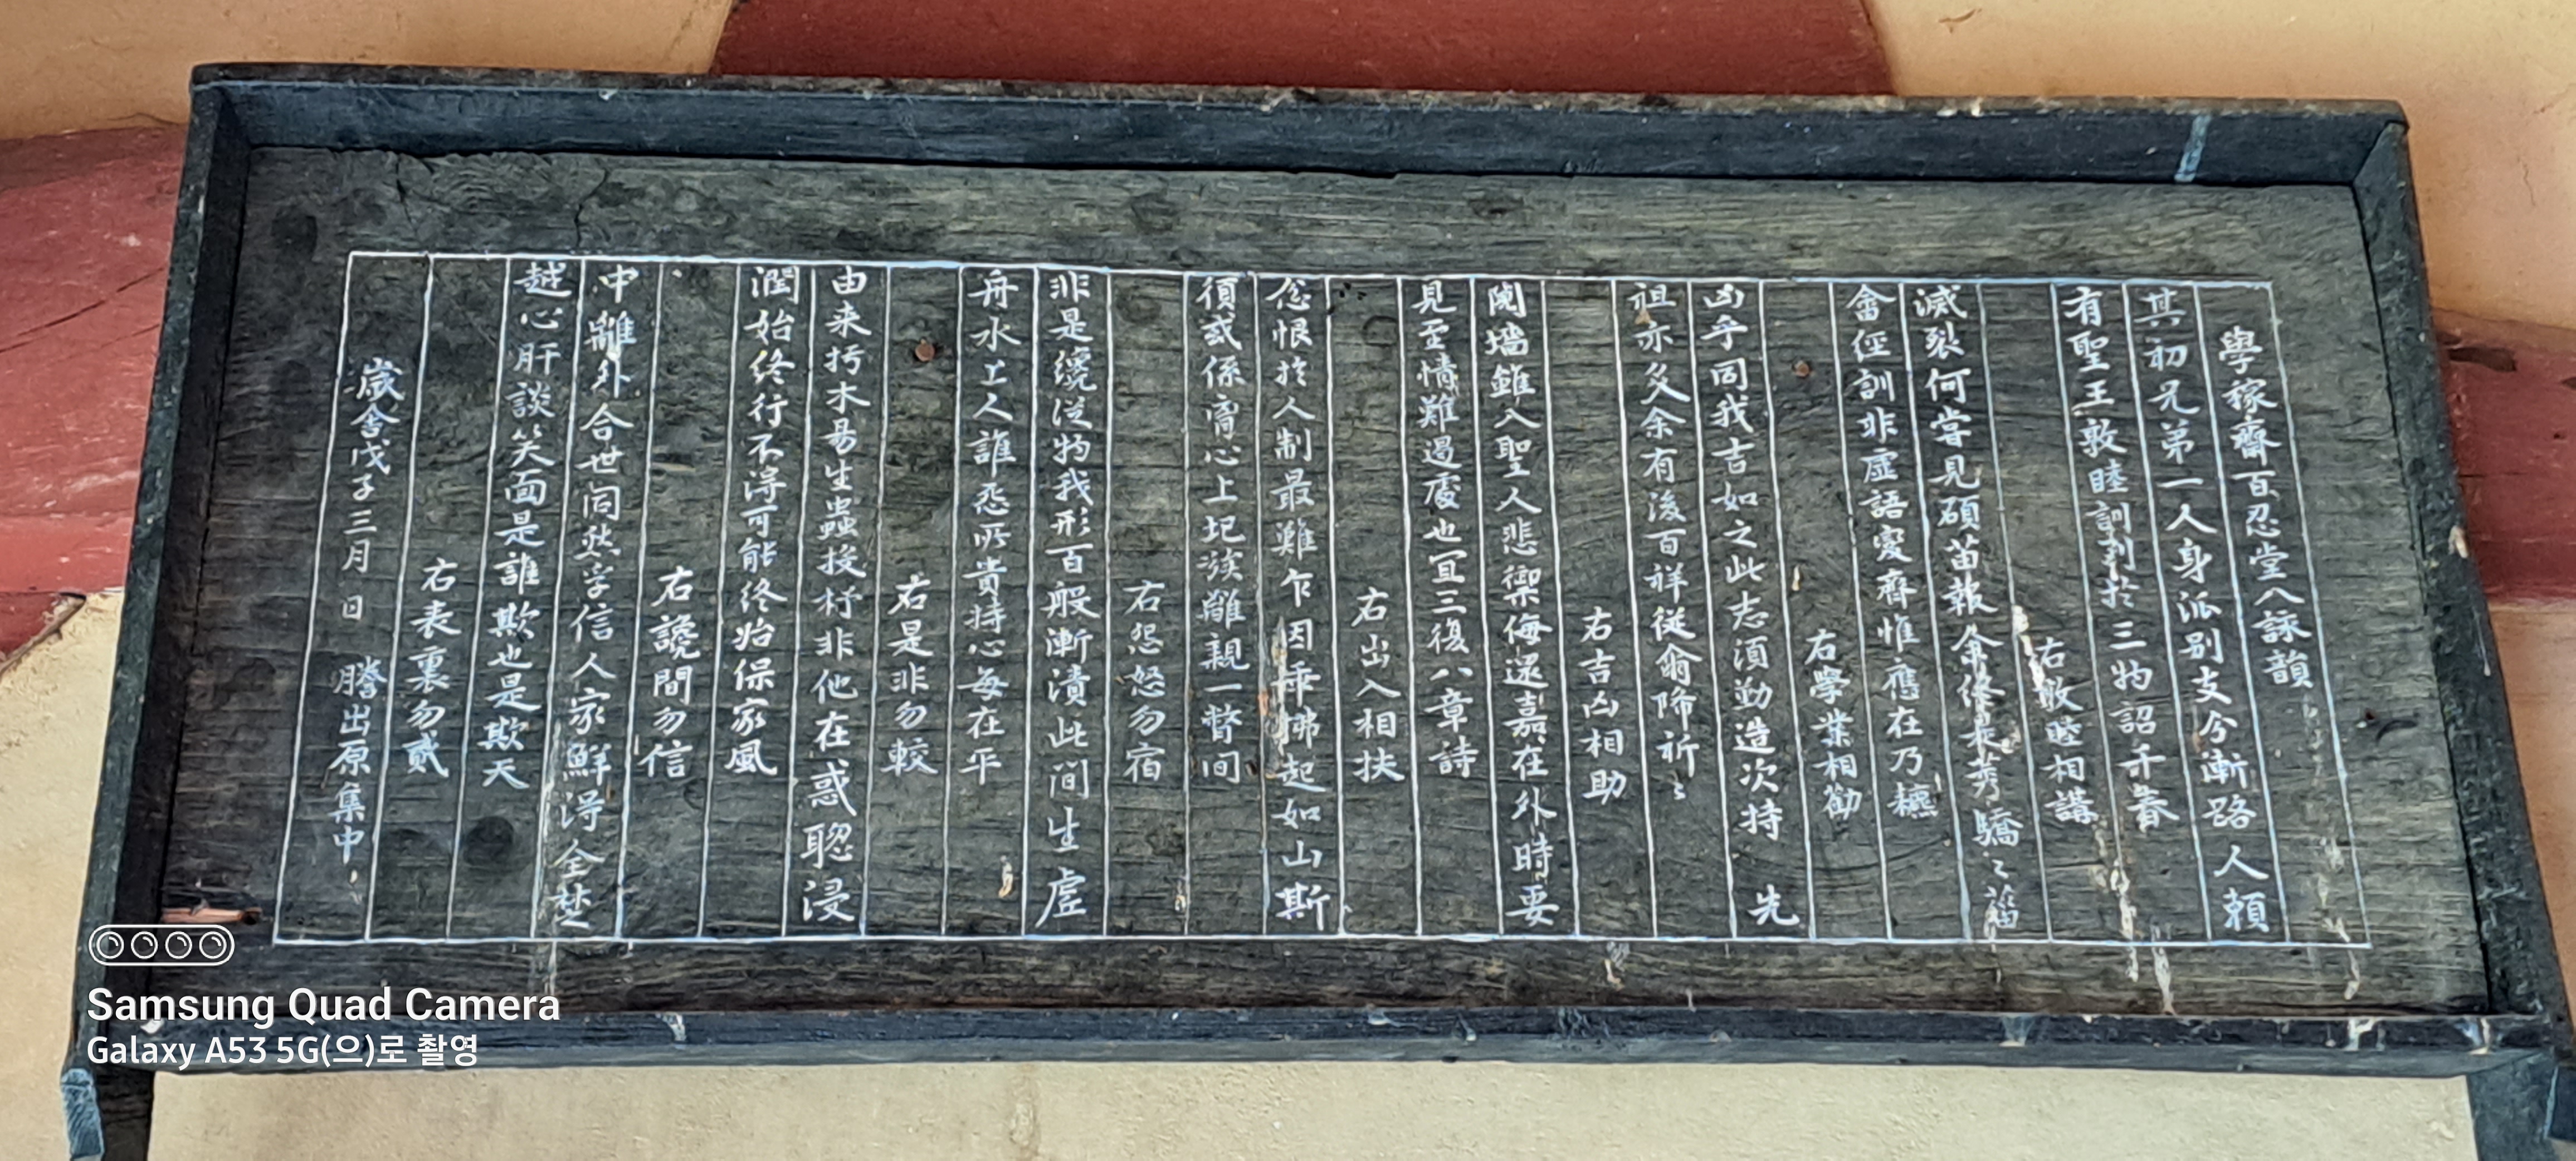 學稼齋百忍堂八詠韻
其初兄弟一人身派別支分漸路人賴
有聖王敦睦訓利於三物詔千春
右敦睦相講
滅裂何嘗見碩苗報余修是莠驕〻菑
畬徑訓非虛語爰齋惟應在乃耘
右學業相勸
凶乎同我吉如之此志須勤造次持 先
祖亦爻余有後百祥從爾降祈〻
右吉凶相助
鬩墻雖入聖人悲禦侮還嘉在外時要
見至情難過處也宜三復八章詩
右出入相扶
忿恨於人制最難乍因乖拂起如山斯
須或係脣心上圮族離親一瞥间
右怨怒勿宿
非是纔從物我形百般漸漬此间生虛
舟水上人誰忤所貴持心每在平
右是非勿較
由来朽木易生蟲投杼非他在惑聰浸
潤始終行不得可能終始保家風
右讒間勿信
中離外合世同然孚信人家鮮得全楚
越心肝談笑面是誰欺也是欺天
右表裏勿貳
歲舍戊子三月日 謄出原集中
Samsung Quad Camera
Galaxy A53 5G(으)로 촬영